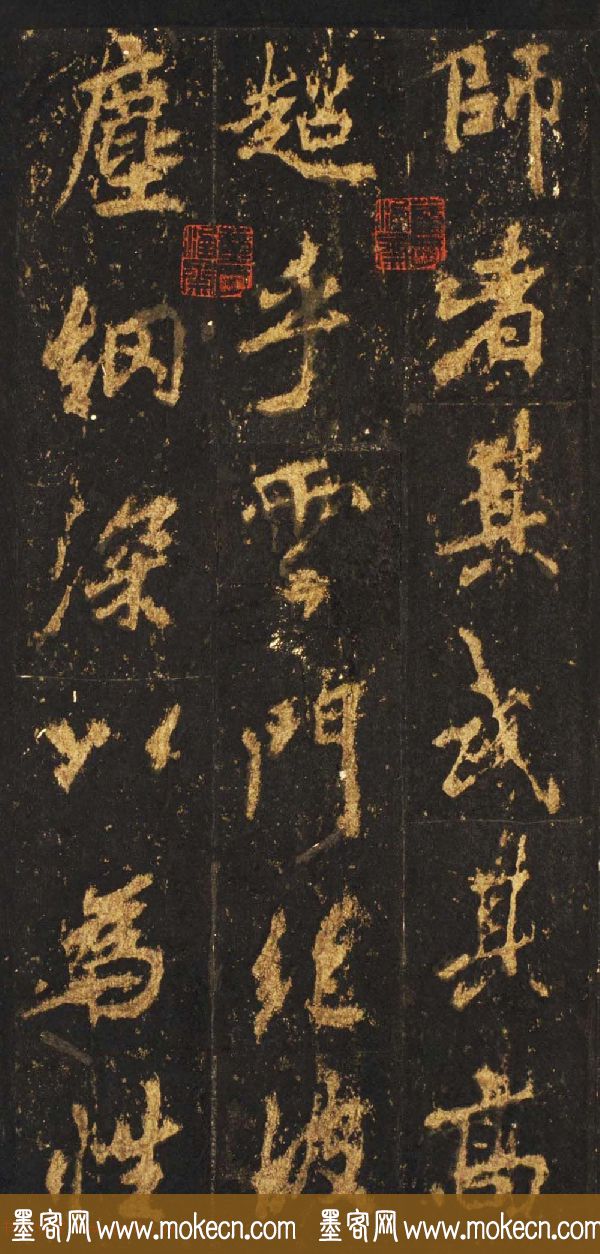 師者其或其高
超乎雲門絕彼
塵網深以為性
墨客网 www.mokecn.com 墨客网 www.mokecn.com